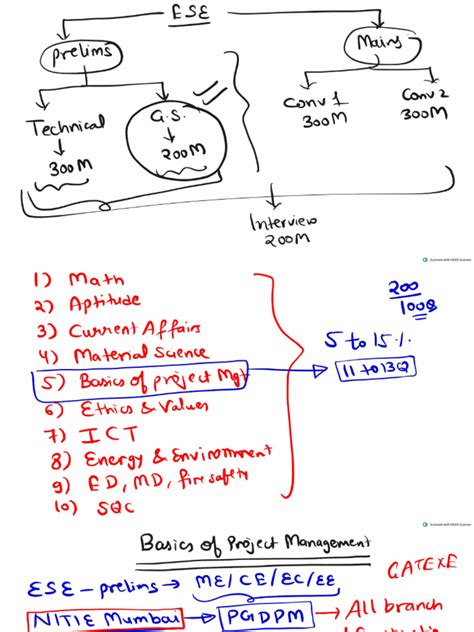 ESE
Prelims
Mains
Technical
300M
G.S.
200M
Conv 1
300M
Conv 2
300M
Interview
200M
Scanned with OKEN Scanner
1) Math
2) Aptitude
3) Current Affairs
4) Material Science
5) Basics of project Mgt
6) Ethics & Values
7) ICT
8) Energy & Environment
9) ED, MD, fire safety
10) SQC
200
100Q
5 to 15 %
11 to 13Q
Scanned with OKEN Scanner
Basics of Project Management
ESE - prelims → ME/CE/EC/EE
GATEXE
NITIE Mumbai → PGDPM → All branch